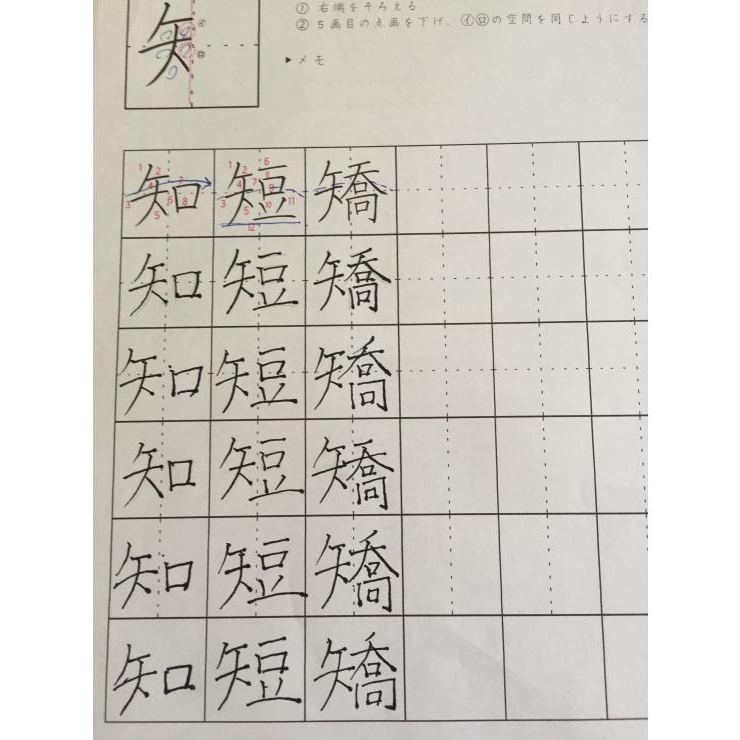 矢
イ
ロ
① 右端をそろえる
② 5画目の点画を下げ、㋑㋺の空間を同じようにする
▶メモ
知 短 矯
知 短 矯
知 短 矯
知 短 矯
知 短 矯
知 短 矯